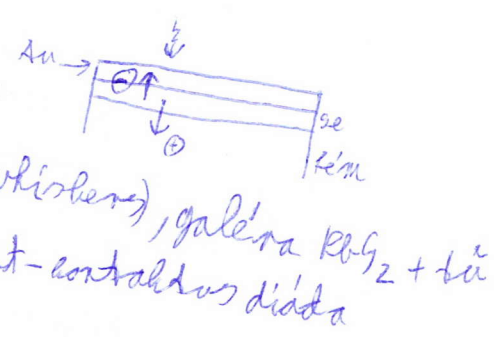 Au
⊖
⊕
Se
fém
whiskers), galéna RbG2 + tű
t-kontaktus dióda